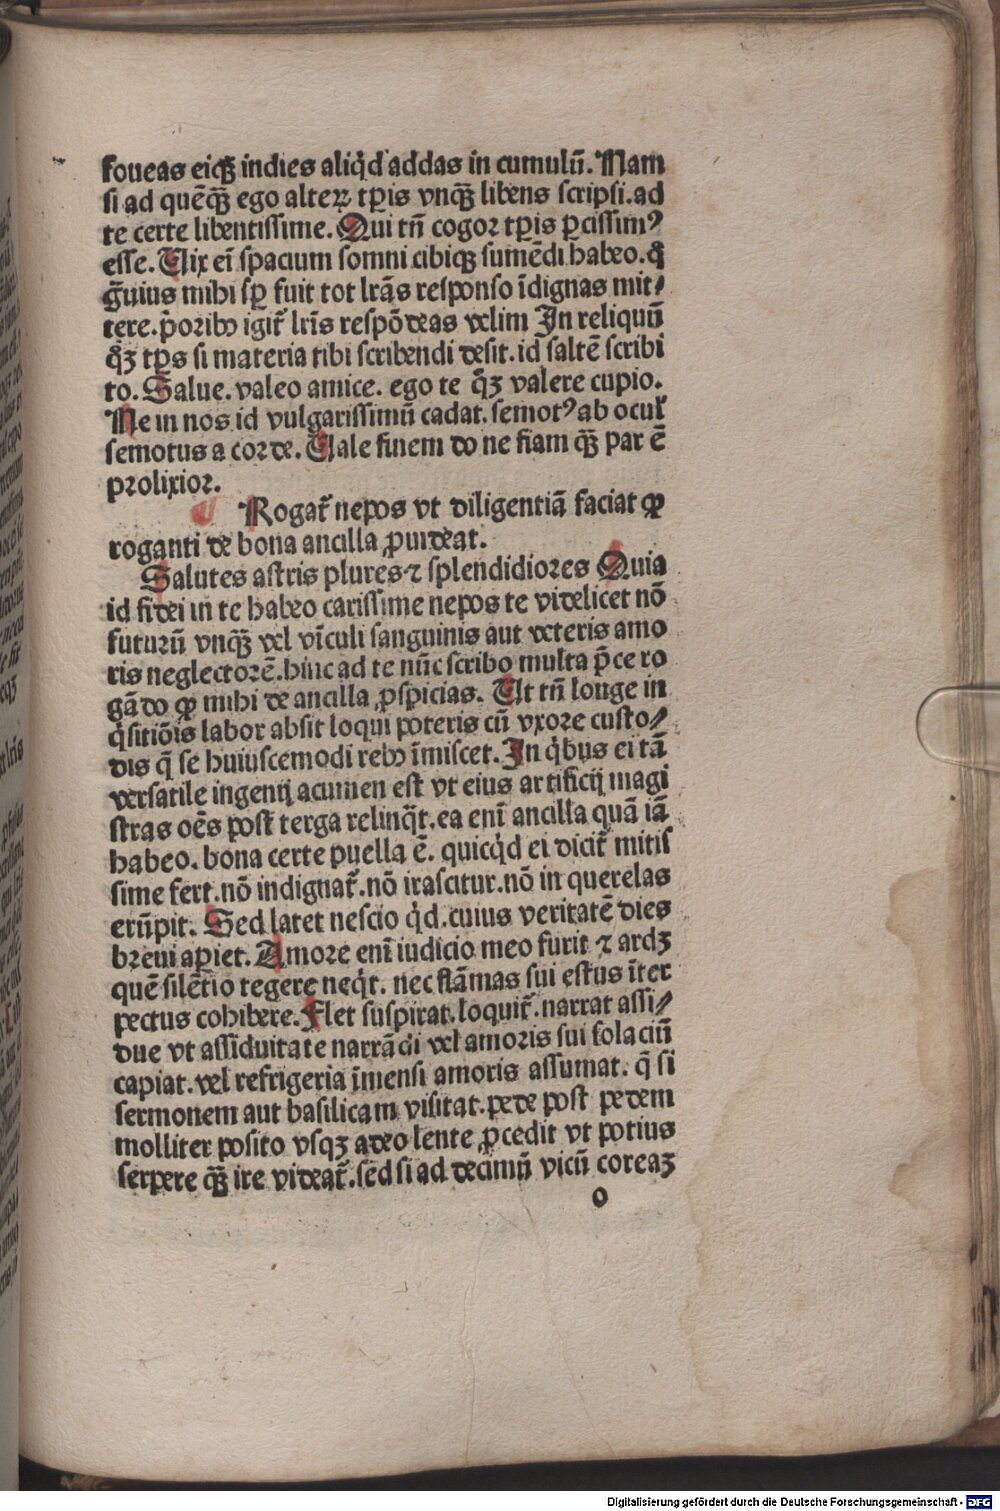 foueas eicꝫ indies aliq̇d addas in cumulū. Nam
si ad quēqꝫ ego alteꝝ tp̄is vnqꝫ libens scripsi. ad
te certe libentissime. Qui tn̄ cogor tp̄is ꝑcissimꝰ
esse. Uix em̄ spacium somni cibiqꝫ sumēdi habeo. q̇
g̈uius mihi sꝑ fuit tot lr̄as responso īdignas mit⸗
tere. p̄oribꝰ igit᷑ lr̄is respōdeas velim In reliquū
q̊ꝫ tp̄s si materia tibi scribendi desit. id saltē scribi
to. Salue. valeo amice. ego te q̊ꝫ valere cupio.
Ne in nos id vulgarissimū cadat. semotꝰ ab ocul᷑
semotus a corde. Uale finem do ne fiam qꝫ par ē
prolixior.
Rogat᷑ nepos vt diligentiā faciat ꝙ
roganti de bona ancilla ꝓuideat.
Salutes astris plures ⁊ splendidiores Quia
id fidei in te habeo carissime nepos te videlicet nō
futurū vnqꝫ vel vīculi sanguinis aut veteris amo
ris neglectorē. hinc ad te nūc scribo multa p̄ce ro
gādo ꝙ mihi de ancilla ꝓspicias. Ut tn̄ longe in
q̇sitiōis labor absit loqui poteris cū vxore custo⸗
dis q̄ se huiuscemodi rebꝰ īmiscet. In q̇bus ei tā
versatile ingenij acumen est vt eius artificij magi
stras oēs post terga relinq̇t. ea enī ancilla quā iā
habeo. bona certe puella ē. quicq̇d ei dicit᷑ mitis
sime fert. nō indignat᷑. nō irascitur. nō in querelas
erūpit. Sed latet nescio q̇d. cuius veritatē dies
breui aꝑiet. Amore enī iudicio meo furit ⁊ ardꝫ
quē silētio tegere neq̇t. nec flāmas sui estus īter
pectus cohibere. Flet suspirat. loquit᷑. narrat assi⸗
due vt assiduitate narrādi vel amoris sui solaciū
capiat. vel refrigeria īmensi amoris assumat. q̄ si
sermonem aut basilicam visitat. pede post pedem
molliter posito vsqꝫ adeo lente ꝓcedit vt potius
serpere qꝫ ire videat᷑. sed si ad decimū vicū coreaꝫ
o
Digitalisierung gefördert durch die Deutsche Forschungsgemeinschaft - DFG